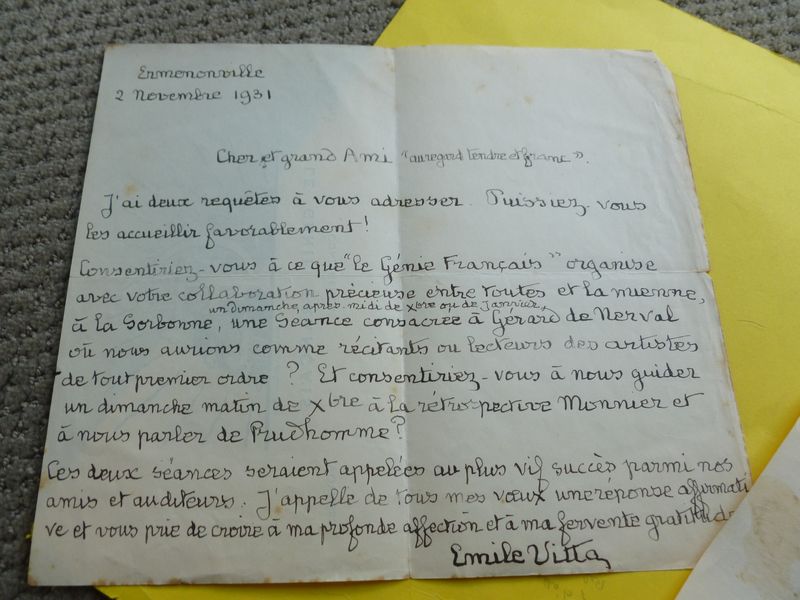 Ermenonville
2 Novembre 1931
Cher et grand Ami "au regard tendre et franc".
J'ai deux requêtes à vous adresser. Puissiez-vous
les accueillir favorablement!
Consentiriez-vous à ce que "le Génie Français" organise
avec votre collaboration précieuse entre toutes et la mienne,
un dimanche après-midi de Xbre ou de Janvier,
à la Sorbonne, une Séance consacrée à Gérard de Nerval
où nous aurions comme récitants ou lecteurs des artistes
de tout premier ordre ? Et consentiriez-vous à nous guider
un dimanche matin de Xbre à la rétrospective Monnier et
à nous parler de Prudhomme?
Ces deux séances seraient appelées au plus vif succès parmi nos
amis et auditeurs. J'appelle de tous mes vœux une réponse affirmati
ve et vous prie de croire à ma profonde affection et à ma fervente gratitude
Emile Vitta